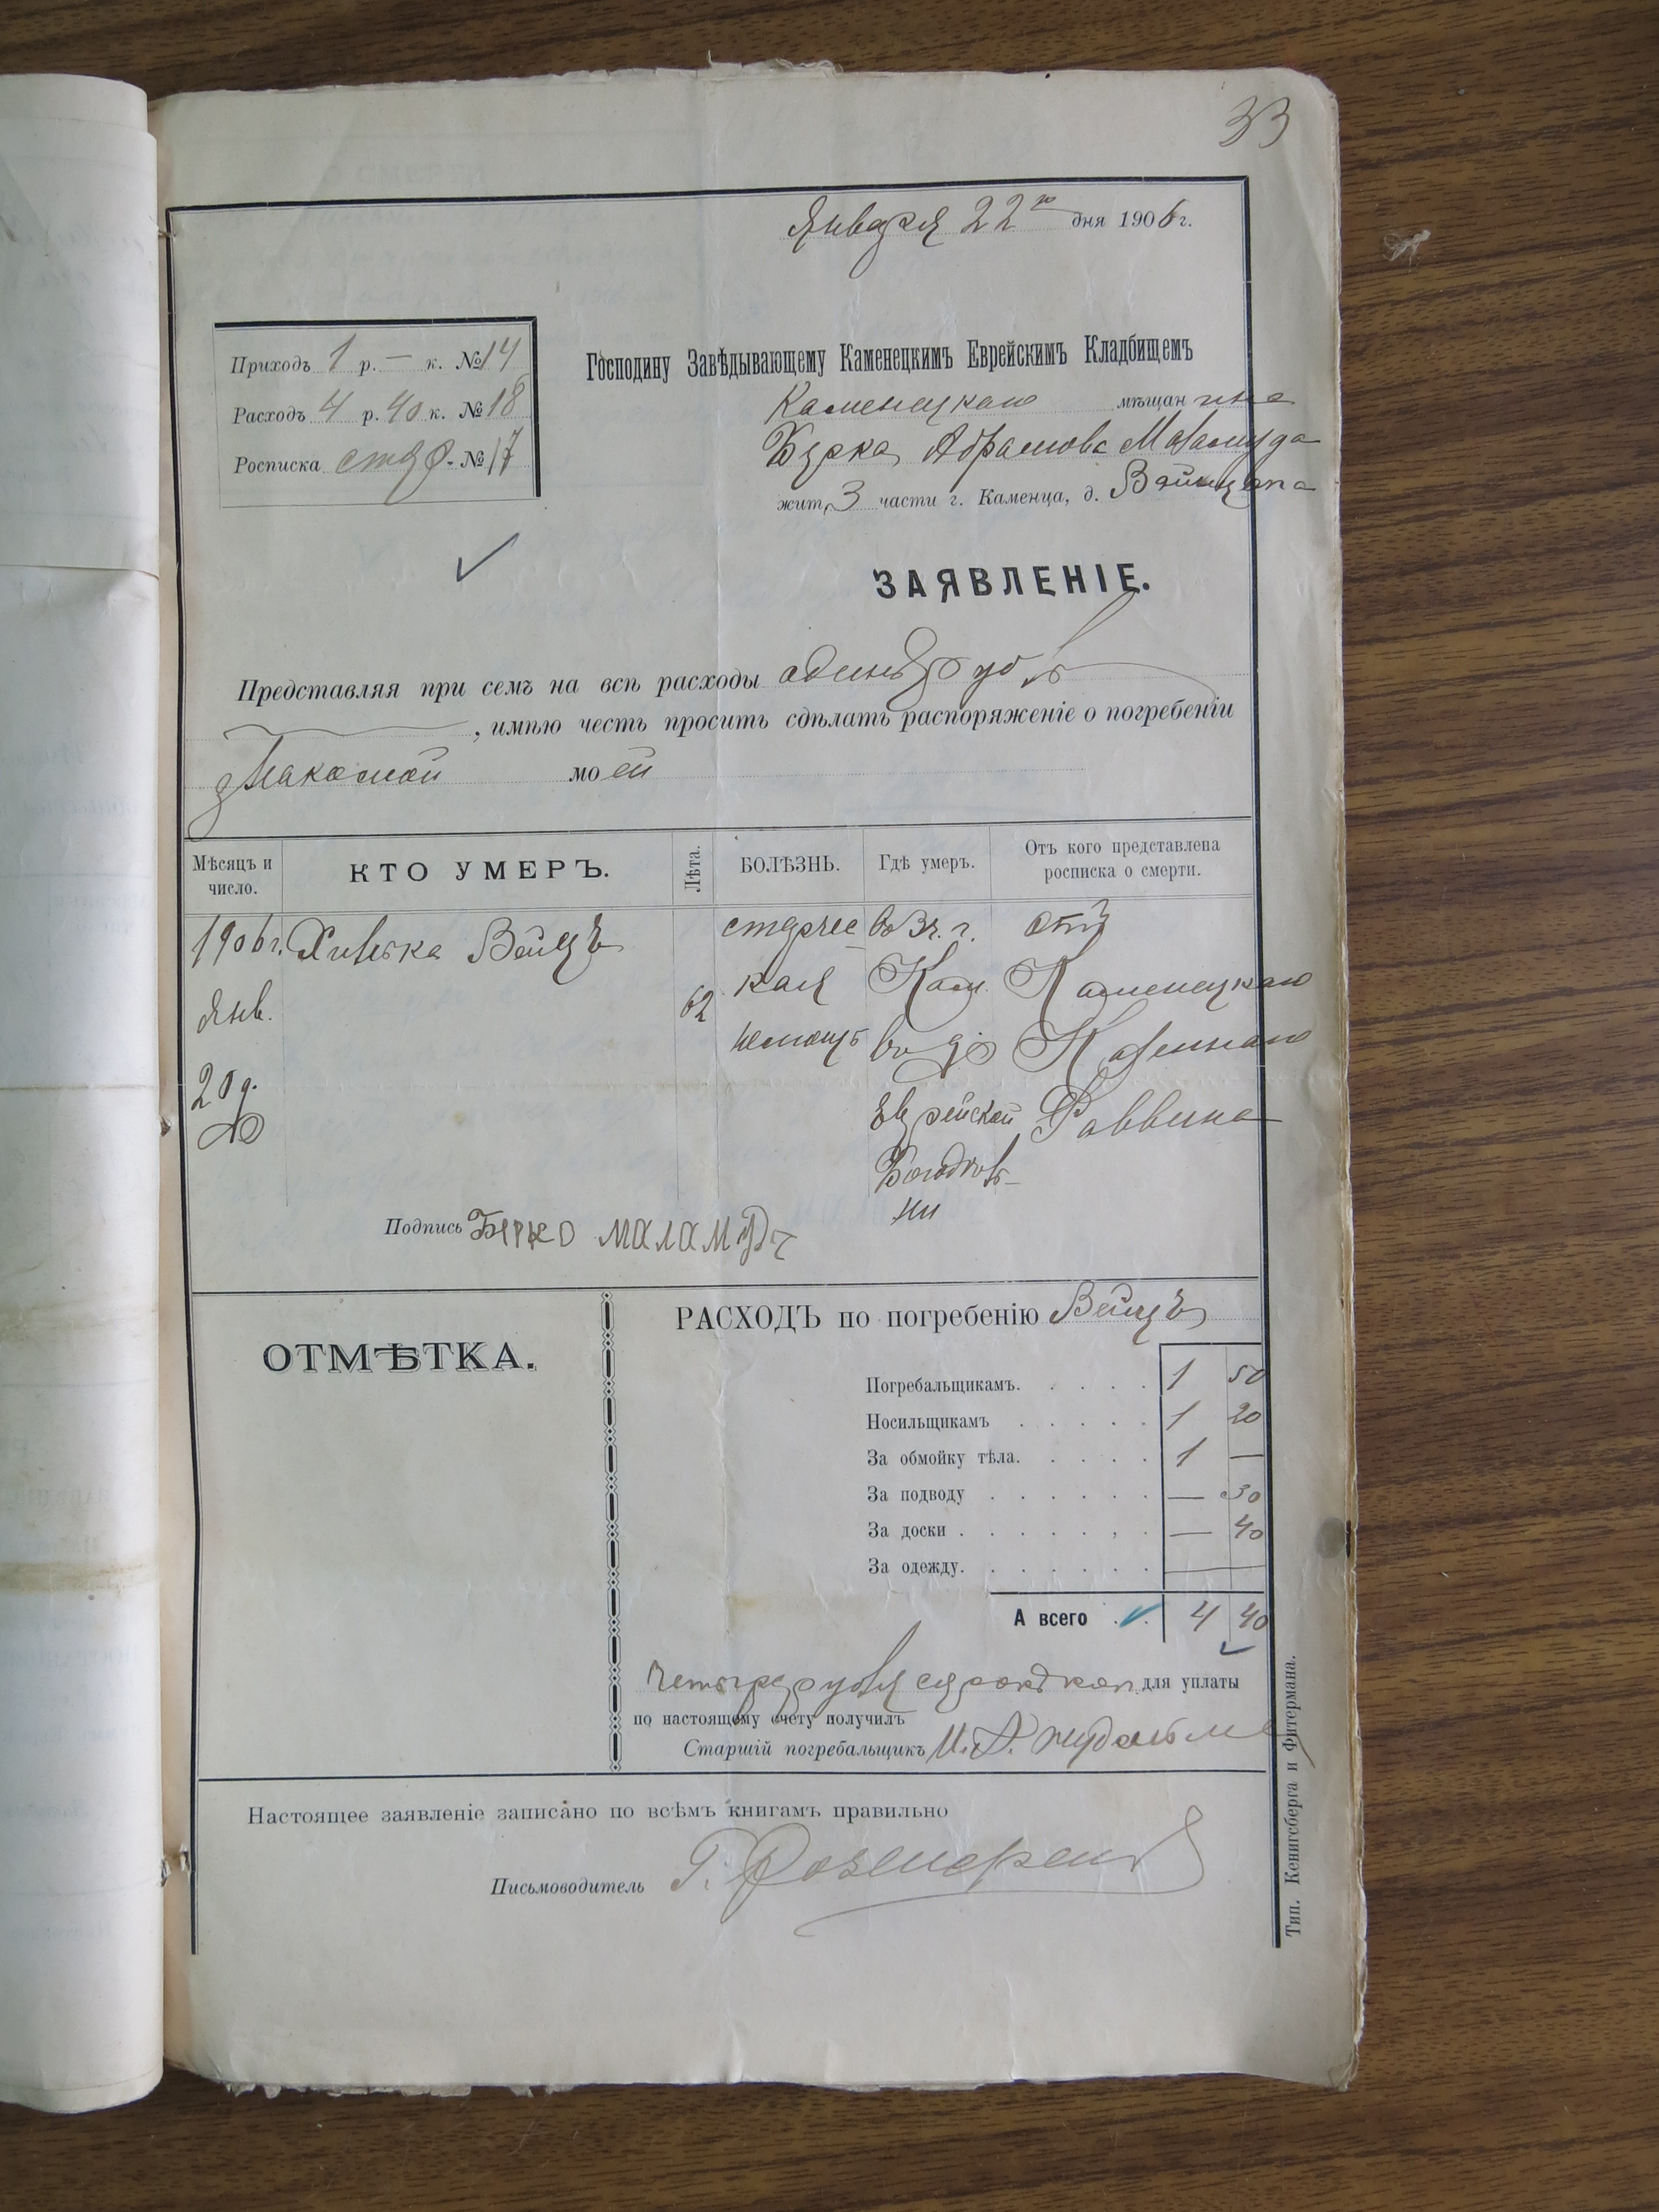 33
Января 22го дня 1906 г.
Приходъ 1 р. — к. №14
Расходъ 4 р. 40 к. №18
Росписка №17
Господину Завѣдывающему Каменецкимъ Еврейскимъ Кладбищемъ
Каменецкаго мѣщанина
Берка Абрамова Маламуда
жит. 3 части г. Каменца, д. Вайнцера
ЗАЯВЛЕНІЕ.
Представляя при семъ на всѣ расходы одинъ руб
, имѣю честь просить сдѣлать распоряженіе о погребеніи
знакомой моей
Мѣсяцъ и число. КТО УМЕРЪ. Лѣта. БОЛѢЗНЬ. Гдѣ умеръ. Отъ кого представлена росписка о смерти.
1906 г. Хивька Вейцъ старчес въ 3 ч. г. отъ
Янв. 62 кая Кам. Каменецкаго
немощь въ Казеннаго
20 д. Еврейской Раввина
Богадѣль
ни
Подпись Берко маламудъ
ОТМѢТКА.
РАСХОДЪ по погребенію Вейцъ
Погребальщикамъ. 1 50
Носильщикамъ 1 20
За обмойку тѣла. 1 —
За подводу — 30
За доски — 40
За одежду. —
А всего 4 40
Четыре рубля сорокъ коп. для уплаты
по настоящему счету получилъ
Старшій погребальщикъ
Настоящее заявленіе записано по всѣмъ книгамъ правильно
Письмоводитель
Тип. Кенигсберга и Фитермана.